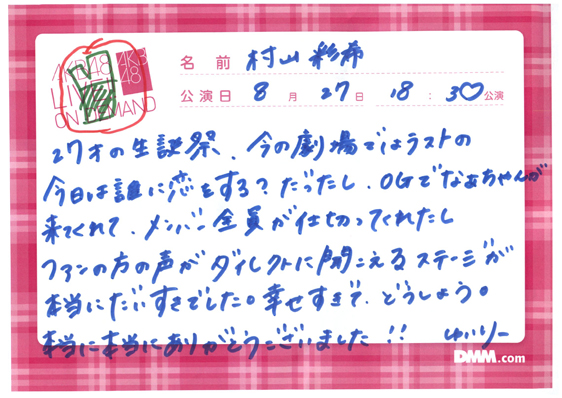 AKB48
LIVE!!
ON DEMAND
AKB
48
名前 村山彩希
公演日 8月27日 18:30公演
27才の生誕祭、今の劇場ではラストの
今日は誰に恋をする？だったし、OGでなぁちゃんが
来てくれて、メンバー全員が仕切ってくれたし
ファンの方の声がダイレクトに聞こえるステージが
本当にだいすきでした。幸せすぎて、どうしよう。
本当に本当にありがとうございました!! ゆいりー
DMM.com